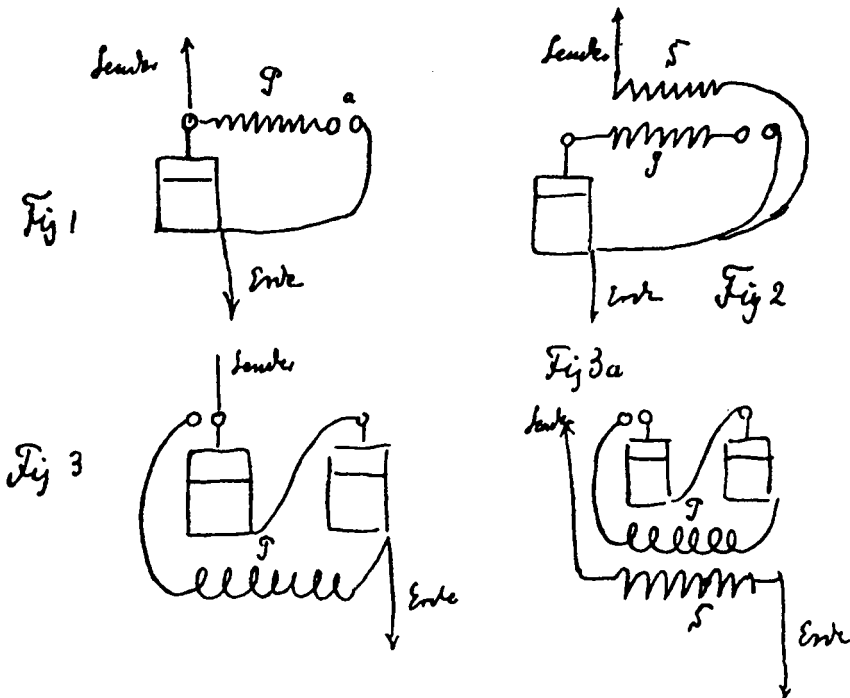 Sender
P
a
Fig 1
Erde
Sender
S
P
Erde
Fig 2
Sender
Fig 3
P
Erde
Fig 3a
Sender
P
S
Erde